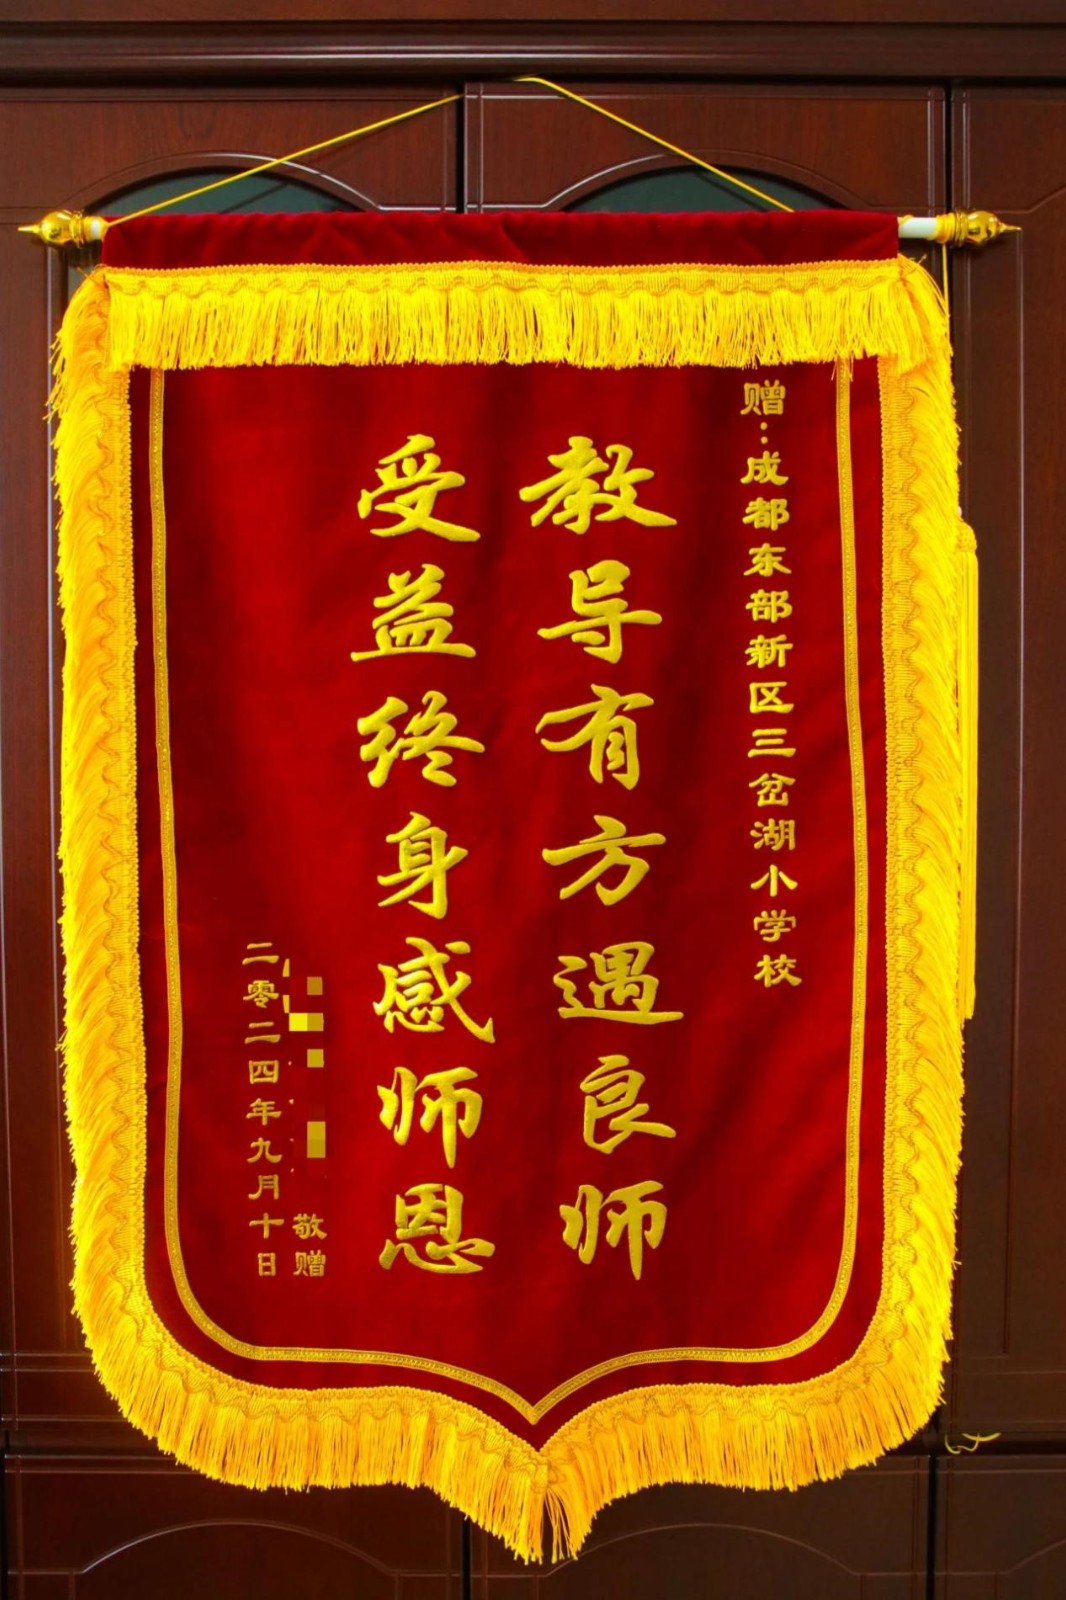 赠：成都东部新区三岔湖小学校
教导有方遇良师
受益终身感师恩
敬赠
二零二四年九月十日